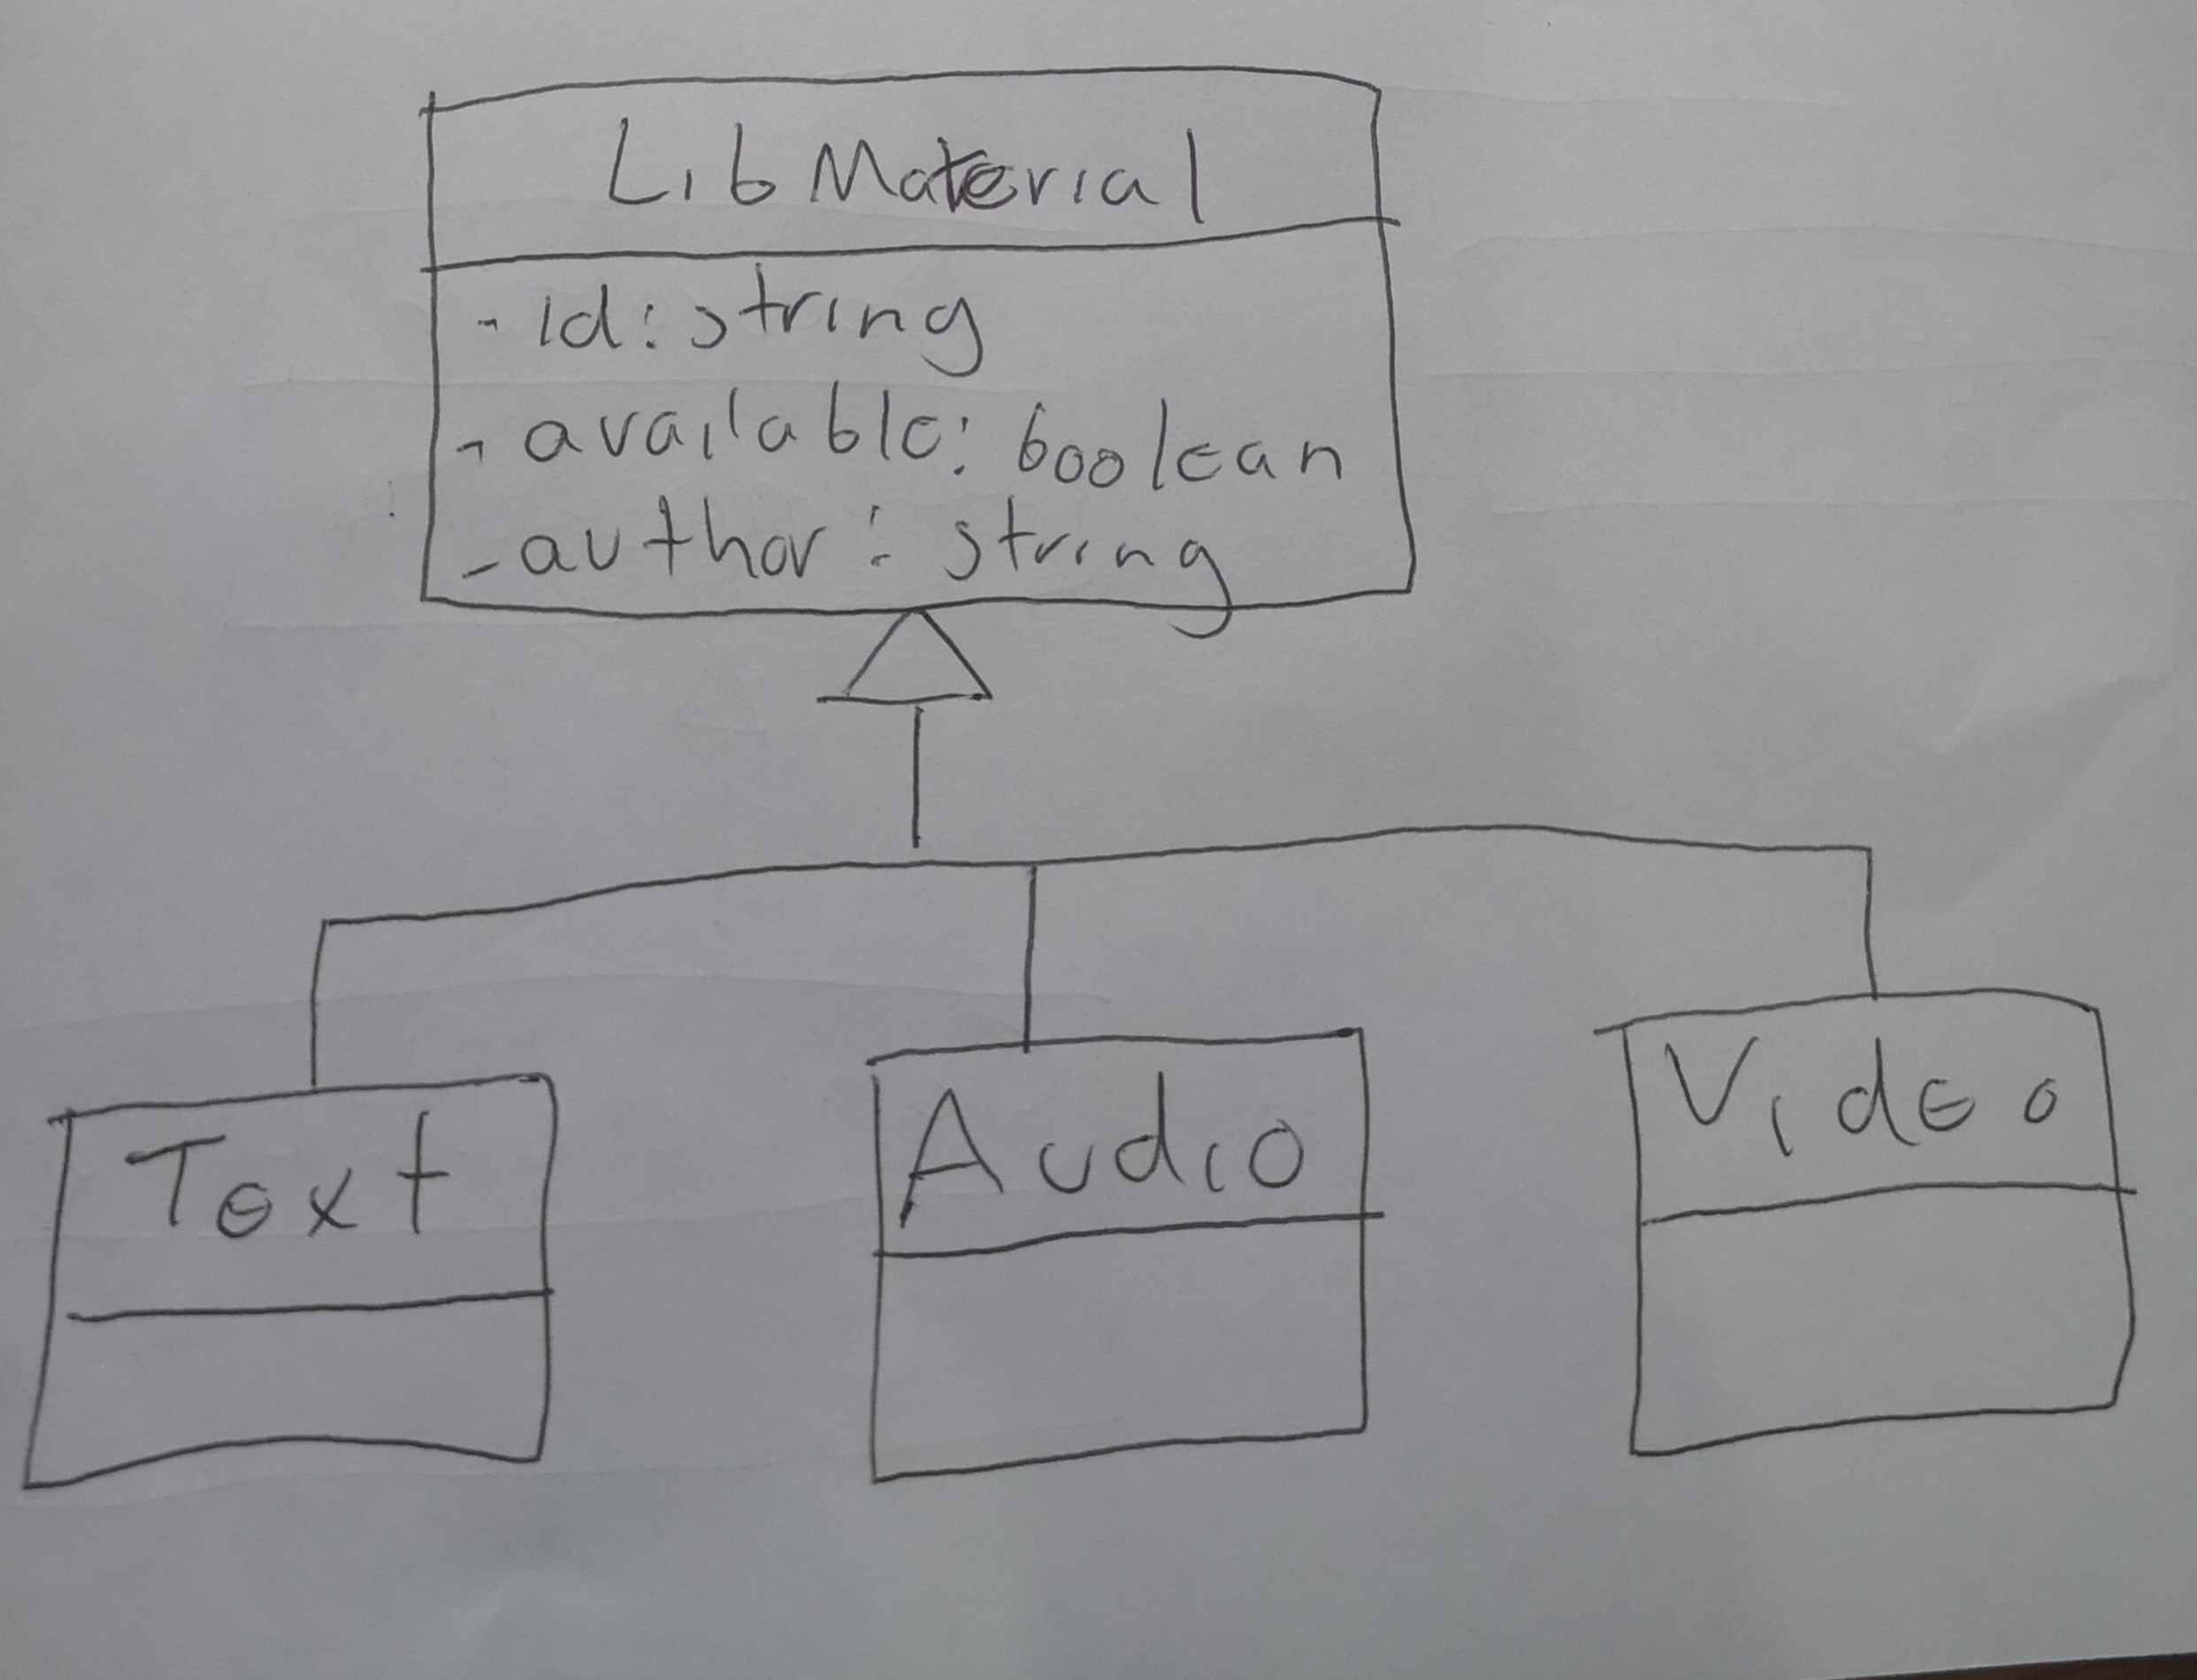 LibMaterial
- id: string
- available: boolean
- author: string
Text
Audio
Video